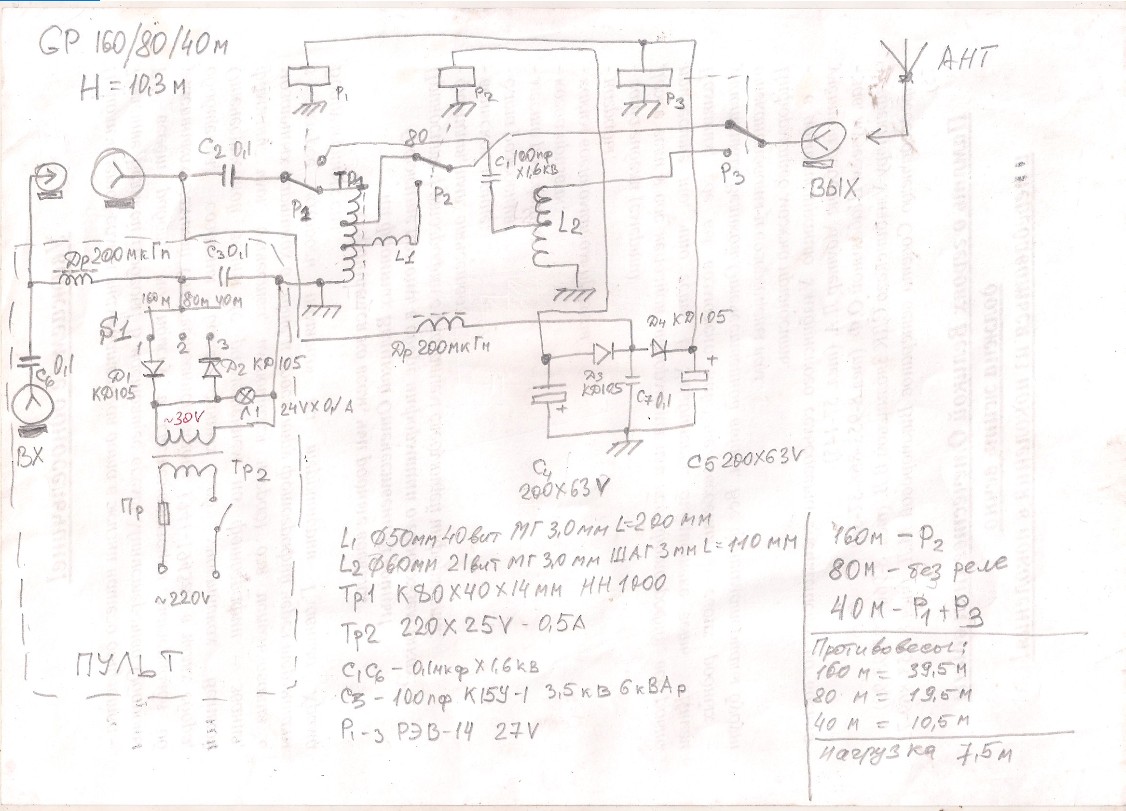 GP 160/80/40м
H = 10,3м
P1
P2
P3
АНТ
C2 0,1
80
C1 100пф
х1,6кв
P1
ТР1
P2
P3
ВЫХ
L1
L2
Др 200мкГп
C3 0,1
160м 80м 40м
S1
1 2 3
Д1
КД105
Д2 КД105
C6 0,1
~30V
Л1
24V X 0,1A
ВХ
Тр2
Пр
~220V
ПУЛЬТ
Др 200мкГн
Д4 КД105
Д3
КД105
C7 0,1
+
+
C4
200X63V
C5 200X63V
L1 Ф50мм 40вит МГ 3,0мм L=200мм
L2 Ф60мм 21вит МГ 3,0мм ШАГ 3мм L=110 мм
Тр.1 К 80X40X14мм НН 1000
Тр2 220X25V - 0,5A
C1C6 - 0,1мкф X 1,6кв
C3 - 100пф К15У-1 3,5кв 6кВАр
P1-3 РЭВ-14 27V
160м - P2
80м - без реле
40м - P1+P3
Противовесы:
160 м = 39,5м
80 м = 19,5м
40 м = 10,5м
нагрузка 7,5м